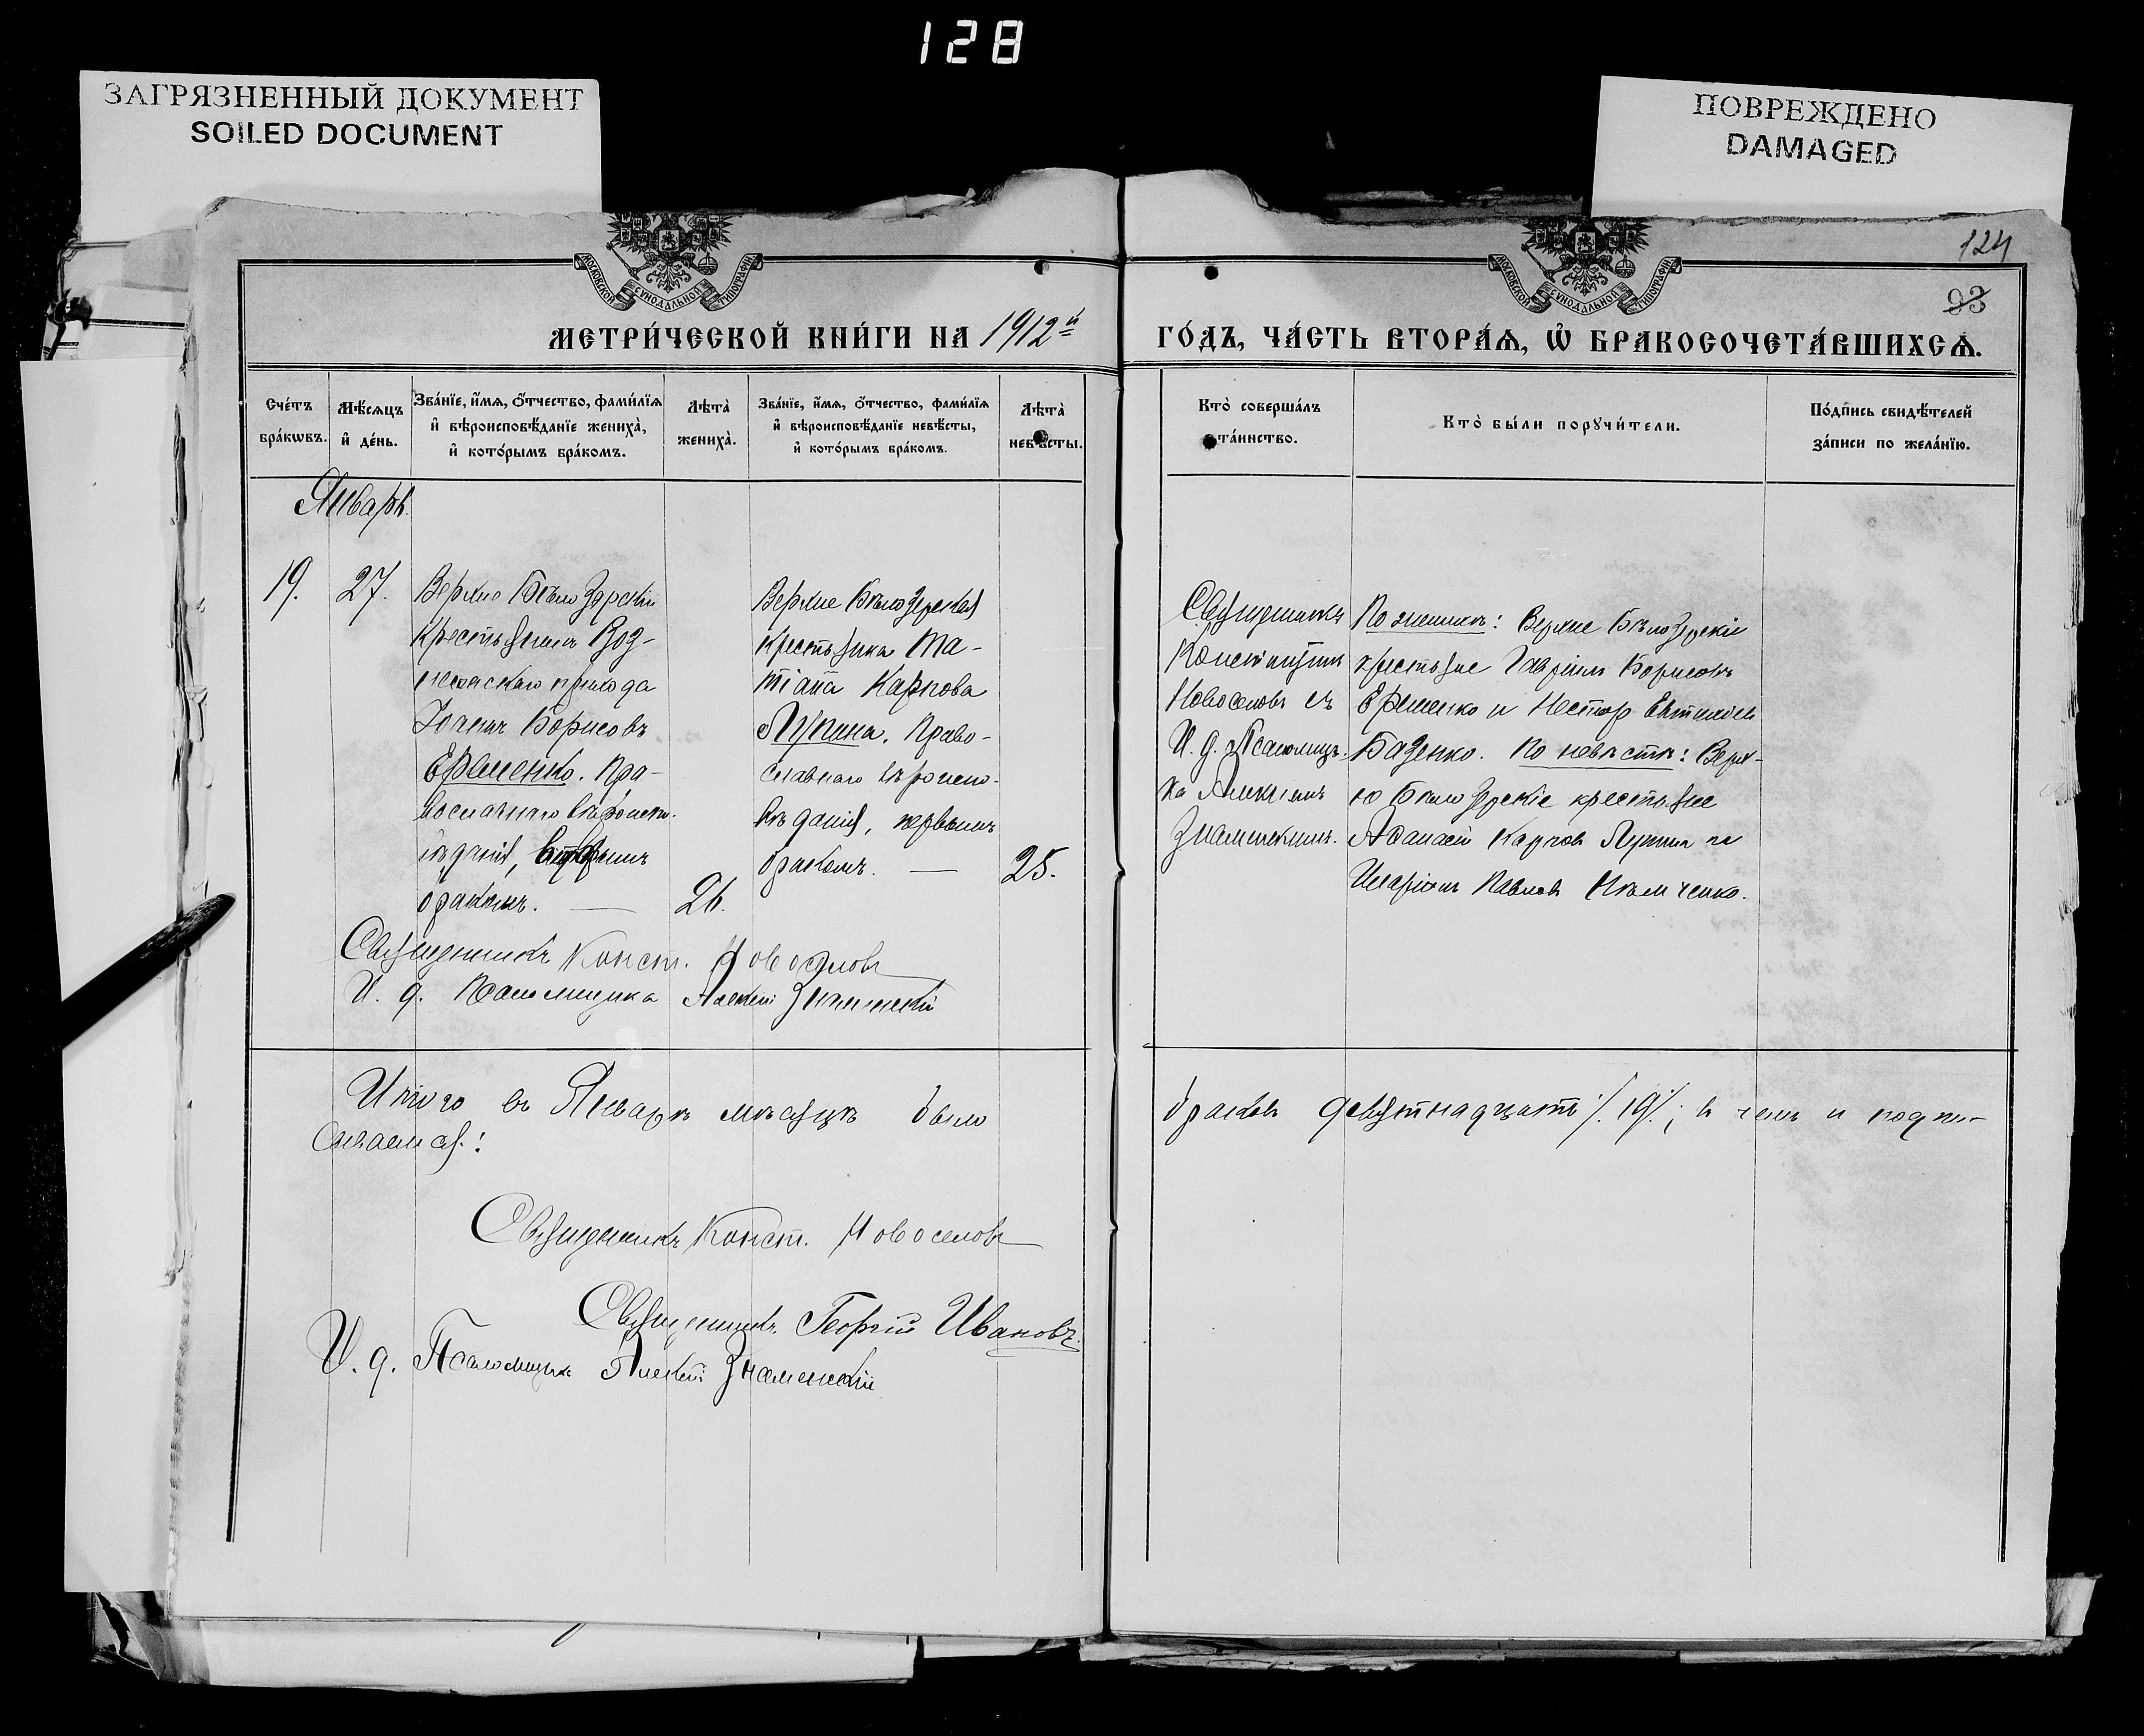 128
ЗАГРЯЗНЕННЫЙ ДОКУМЕНТ
SOILED DOCUMENT
ПОВРЕЖДЕНО
DAMAGED
МОСКОВСКОЙ СѴНОДАЛЬНОЙ ТИПОГРАФІИ
МОСКОВСКОЙ СѴНОДАЛЬНОЙ ТИПОГРАФІИ
124
93
МЕТРИ́ЧЕСКОЙ КНИ́ГИ НА 1912й
ГО́ДЪ, ЧА́СТЬ ВТОРА́Ѧ, Ѡ҆ БРАКОСОЧЕТА́ВШИХСѦ.
Сче́тъ
бра́кѡвъ.
Мѣ́сѧцъ
и҆ де́нь.
Зва́нїе, и҆́мѧ, ѻ҆́тчество, фами́лїѧ
и҆ вѣроисповѣ́данїе жениха̀,
и҆ кото́рымъ бра́комъ.
Лѣта̀
жениха̀.
Зва́нїе, и҆́мѧ, ѻ҆́тчество, фами́лїѧ
и҆ вѣроисповѣ́данїе невѣ́сты,
и҆ кото́рымъ бра́комъ.
Лѣта̀
невѣ́сты.
Кто̀ соверша́лъ
та́инство.
Кто̀ бы́ли порꙋчи́тели.
По́дпись свидѣ́телей
за́писи по жела́нїю.
Январь.
19.
27.
Верхне Бѣлозерскій
крестьянинъ Воз-
несенскаго прихода
Іоаннъ Борисовъ
Ераменко. Пра-
вославнаго вѣроиспо-
вѣданія, вторымъ
бракомъ. —
26.
Верхне Бѣлозерская
крестьянка Та-
тіана Карпова
Лупина. Право-
славнаго вѣроиспо-
вѣданія, первымъ
бракомъ. —
25.
Священникъ
Константинъ
Новоселовъ съ
И. д. Псаломщи-
ка Алексіемъ
Знаменскимъ.
По женихѣ: Верхне Бѣлозерскіе
крестьяне Гавріилъ Борисовъ
Ераменко и Несторъ Евтихіевъ
Базенко. По невѣстѣ: Верх-
не Бѣлозерскіе крестьяне
Аѳанасій Карповъ Лупинъ и
Иларіонъ Павловъ Нѣмченко.
Священникъ Конст. Новоселовъ
И. д. Псаломщика Алексій Знаменскій
Итого въ Январѣ мѣсяцѣ было
браковъ девятнадцать /.19./; въ чемъ и подпи-
сываемся:
Священникъ Конст. Новоселовъ
Священникъ Георгій Ивановъ.
И. д. Псаломщика Алексій Знаменскій